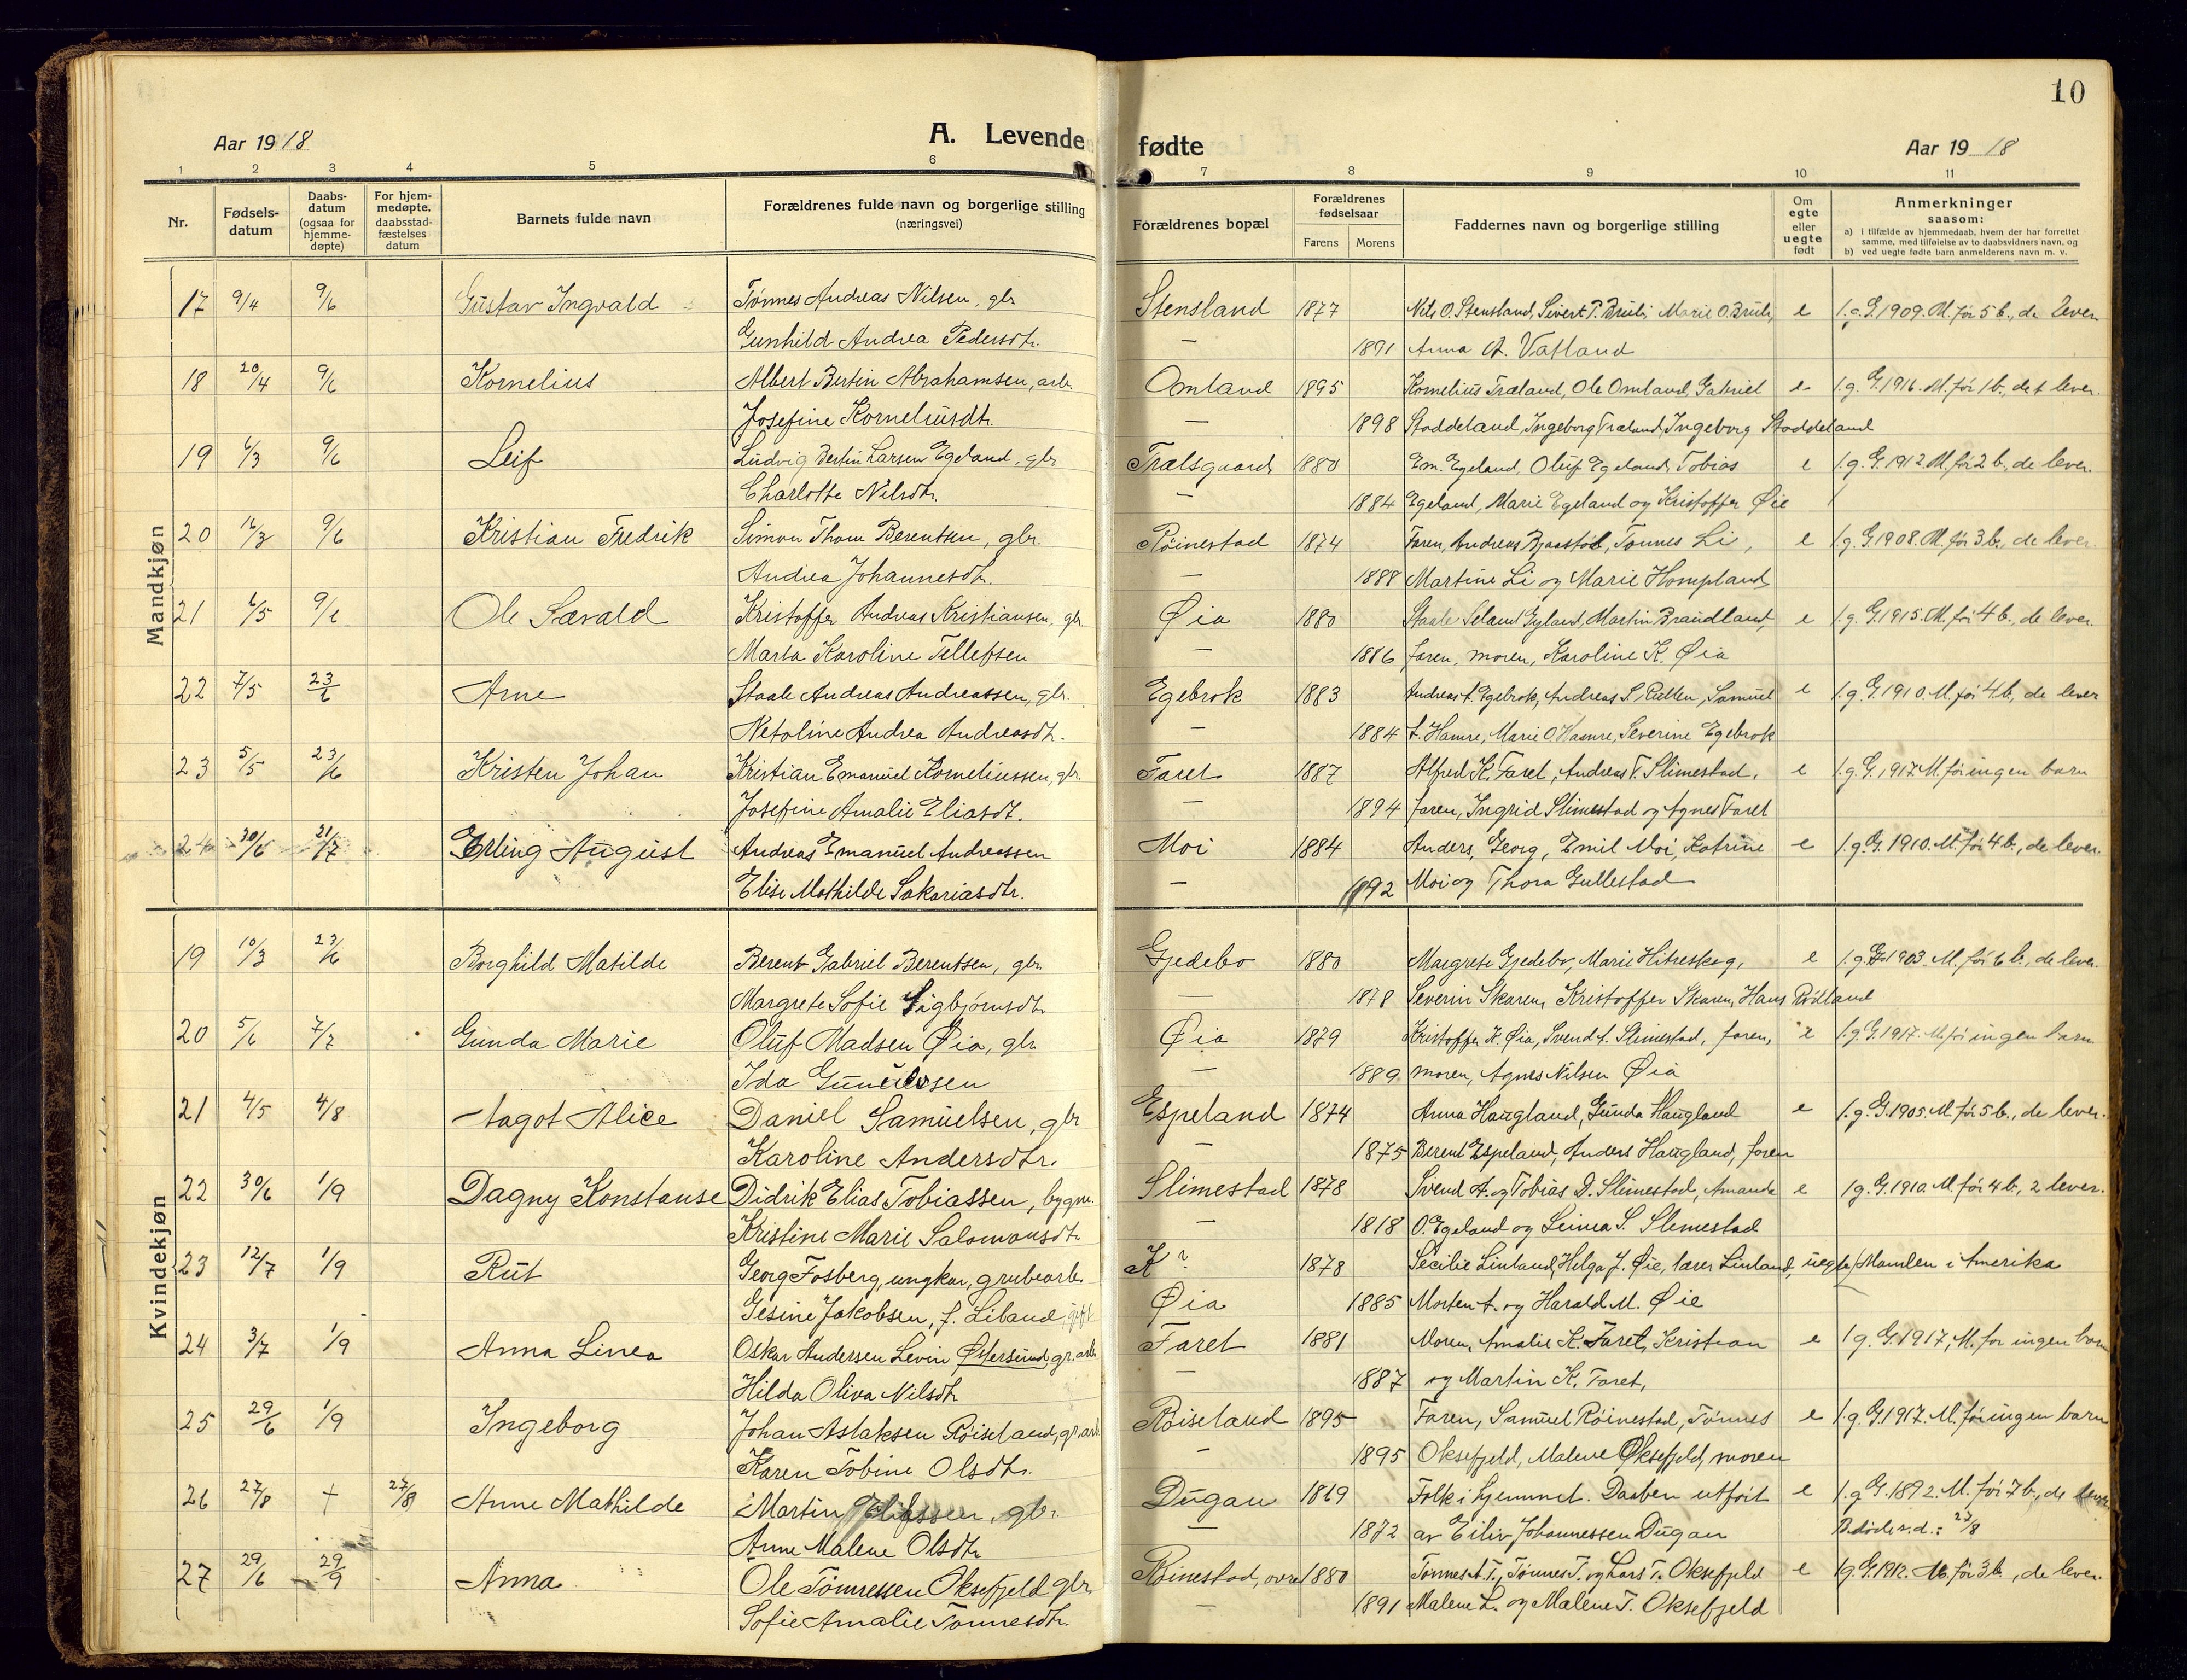 10
Aar 1918 A. Levende fødte Aar 1918
1 2 3 4 5 6 7 8 9 10 11
Nr.
Fødsels-
datum
Daabs-
datum
(ogsaa for
hjemme-
døpte)
For hjem-
medøpte,
daabsstad-
fæstelses
datum
Barnets fulde navn
Forældrenes fulde navn og borgerlige stilling
(næringsvei)
Forældrenes bopæl
Forældrenes
fødselsaar
Farens Morens
Faddernes navn og borgerlige stilling
Om
egte
eller
uegte
født
Anmerkninger
saasom:
a) i tilfælde av hjemmedaab, hvem der har forrettet
samme, med tilføielse av to daabsvidners navn, og
b) ved uegte fødte barn anmelderens navn m. v.
Mandkjøn
17 9/4 9/6 Gustav Ingvald Tønnes Andreas Nilsen, gbr Stensland 1877 Nils O. Stensland, Sivert P. Bruli, Marie O. Bruli, e f.g.G. 1909. M. før 5 b., de lever
Gunhild Andrea Pedersdtr. — 1891 Anna A. Vatland
18 20/4 9/6 Kornelius Albert Bertin Abrahamsen, arb. Omland 1895 Kornelius Træland, Ole Omland, Gabriel e f.g.G. 1916. M. før 1 b., det lever.
Josefine Korneliusdtr. — 1898 Stoddeland, Ingeborg Træland, Ingeborg Stoddeland
19 6/3 9/6 Leif Ludvig Bertin Larsen Egeland, gbr Trælsgaard 1880 Em. Egeland, Oluf Egeland, Tobias e f.g.G. 1912. M. før 2 b., de lever.
Charlotte Nilsdtr. — 1884 Egeland, Marie Egeland og Kristoffer Øie
20 16/3 9/6 Kristian Fredrik Simon Thom Berentsen, gbr. Røinestad 1874 Faren, Andreas Bjaastøl, Tønnes Li, e f.g.G. 1908. M. før 3 b., de lever.
Andrea Johannesdtr. — 1888 Martine Li og Marie Hompland
21 6/5 9/6 Ole Sævald Kristoffer Andreas Kristiansen, gbr. Øia 1880 Staale Seland Gyland, Martin Brandland, e f.g.G. 1915. M. før 4 b., de lever
Marta Karoline Tellefsen — 1886 faren, moren, Karoline K. Øia
22 7/5 23/6 Arne Staale Andreas Andreassen, gbr. Egebrok 1883 Andreas A. Egebrok, Andreas S. Rullen, Samuel e f.g.G. 1910. M. før 4 b., de lever
Netoline Andrea Andreasdtr. — 1884 A. Hamre, Marie O. Hamre, Severine Egebrok
23 5/5 23/6 Kristen Johan Kristian Emanuel Korneliussen, gbr. Faret 1887 Alfred K. Faret, Andreas T. Slimestad, e f.g.G. 1917. M. før ingen barn
Josefine Amalie Eliasdt. — 1894 faren, Ingrid Slimestad og Agnes Faret
24 30/6 21/7 Erling August Andreas Emanuel Andreassen Moi 1884 Anders, Georg, Emil Moi, Katrine e f.g.G. 1910. M. før 4 b., de lever.
Elise Mathilde Sakariasdtr. — 1892 Moi og Thora Gullestad
Kvindekjøn
19 10/3 23/6 Borghild Matilde Berent Gabriel Berentsen, gbr. Gjedebo 1880 Margrete Gjedebo, Marie Hitreskog, e f.g.G. 1903. M. før 6 b., de lever.
Margrete Sofie Sigbjørnsdtr. — 1878 Severin Skaren, Kristoffer Skaren, Hans Rødland
20 5/6 7/7 Gunda Marie Oluf Madsen Øia, gbr Øia 1879 Kristoffer K. Øia, Svend A. Slimestad, faren, e f.g.G. 1917. M. før ingen barn
Ida Gundersen — 1889 moren, Agnes Nilsen Øia
21 4/5 4/8 Aagot Alice Daniel Samuelsen, gbr Espeland 1874 Anna Haugland, Gunda Haugland e f.g.G. 1905. M. før 5 b., de lever.
Karoline Andersdtr. — 1875 Berent Espeland, Anders Haugland, faren
22 30/6 1/9 Dagny Konstanse Didrik Elias Tobiassen, bygm. Slimestad 1878 Svend A. og Tobias D. Slimestad, Amanda e f.g.G. 1910. M. før 4 b., 2 lever.
Kristine Marie Salamonsdtr. — 1818 O. Egeland og Leinea S. Slimestad
23 12/7 1/9 Rut Georg Fosberg, ungkar, grubearb. K? 1878 Secilie Linland, Helga J. Øie, lærer Linland, uegte Manden i Amerika
Gesine Jakobsen, f. Liland, gift Øia 1885 Morten A. og Harald M. Øie
24 3/7 1/9 Anna Linea Oskar Andersen Levin Østersund, gr. arb Faret 1881 Moren, Amalie K. Faret, Kristian e f.g.G. 1917, M. før ingen barn
Hilda Oliva Nilsdtr — 1887 og Martin K. Faret,
25 29/6 1/9 Ingeborg Johan Aslaksen Røiseland, gr. arb Røiseland 1895 Faren, Samuel Røinestad, Tønnes e f.g.G. 1917. M. før ingen barn
Karen Tobine Olsdtr. — 1895 Oksefjeld, Malene Oksefjeld, moren
26 27/8 † 27/8 Anne Mathilde Martin Eliassen, gbr. Dugan 1869 Folk i hjemmet. Daaben utført e f.g.G. 1892. M. før 7 b., de lever
Anne Malene Olsdtr — 1872 av Eiliv Johannessen Dugan B. døde s.d.: 27/8
27 29/6 29/9 Anna Ole Tønnessen Oksefjeld gbr. Røinestad, øvre 1880 Tønnes A. T., Tønnes T. og Lars T. Oksefjeld e f.g.G. 1912. M. før 3 b., de lever.
Sofie Amalie Tønnesdtr. — 1891 Malene L. og Malene T. Oksefjeld